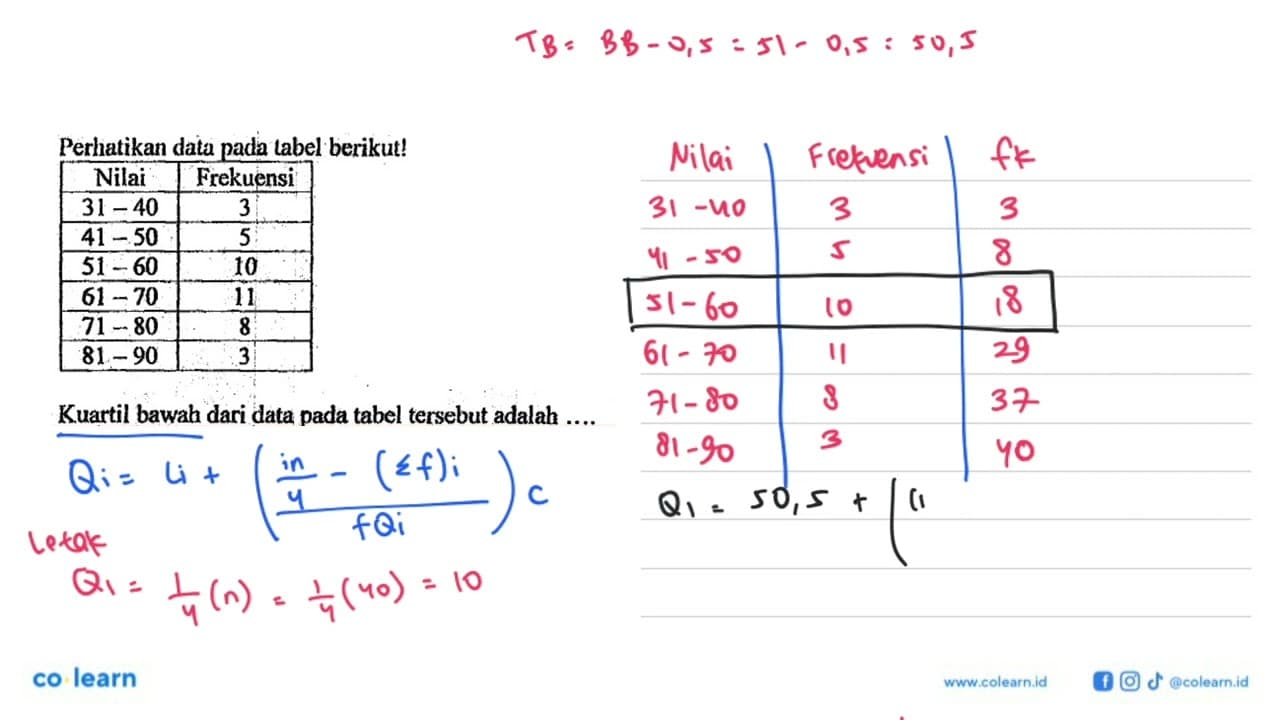 TB = BB - 0,5 = 51 - 0,5 = 50,5
Perhatikan data pada tabel berikut!
Nilai Frekuensi
31 – 40 3
41 – 50 5
51 – 60 10
61 – 70 11
71 – 80 8
81 – 90 3
Kuartil bawah dari data pada tabel tersebut adalah ....
Qi = Li + ( in/4 - (Σf)i / fQi ) c
Letak
Q1 = 1/4 (n) = 1/4 (40) = 10
Nilai Frekuensi fk
31 - 40 3 3
41 - 50 5 8
51 - 60 10 18
61 - 70 11 29
71 - 80 8 37
81 - 90 3 40
Q1 = 50,5 + (
co learn
www.colearn.id @colearn.id